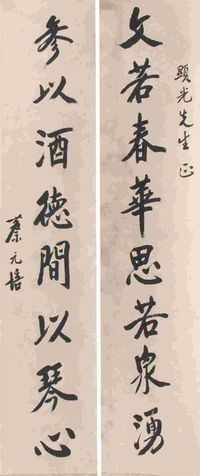 顯光先生正
文若春華思若泉湧
參以酒德間以琴心
蔡元培